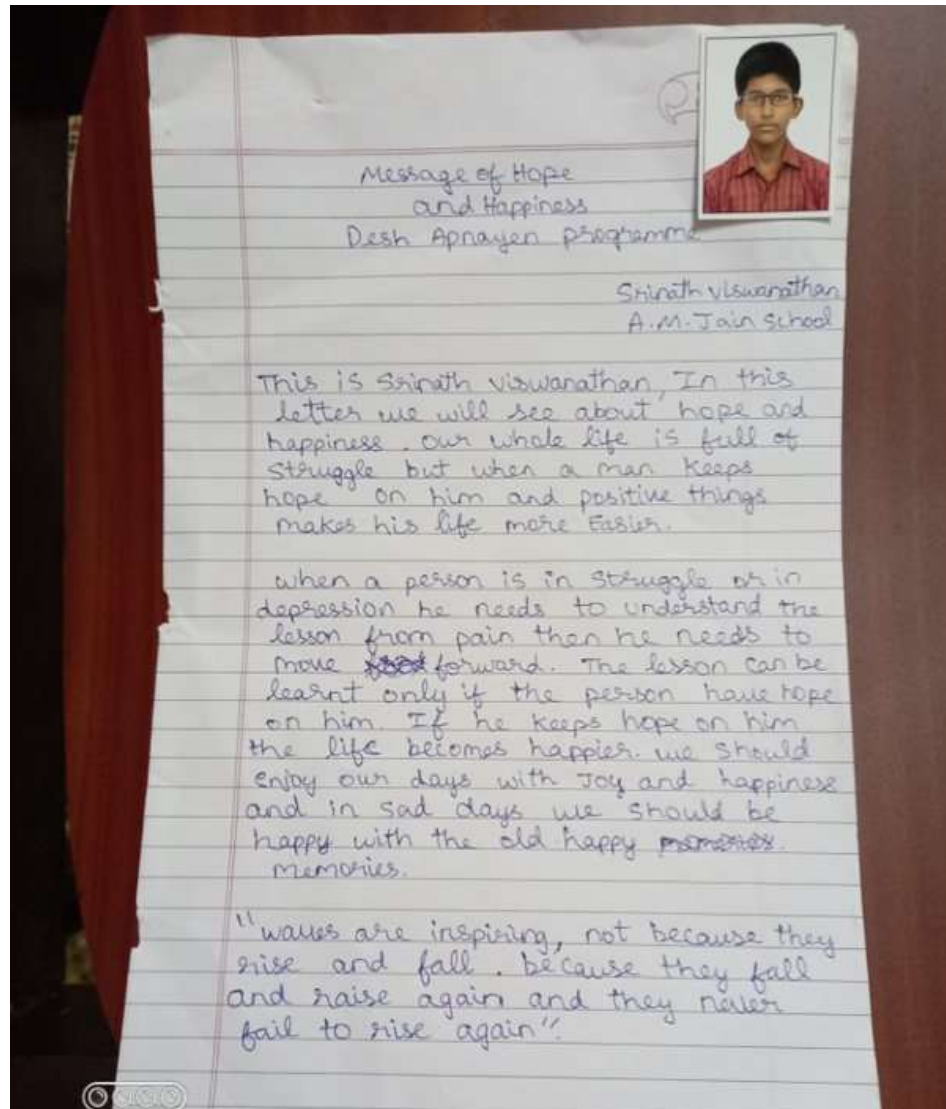 Message of Hope
and Happiness
Desh Apnayen programme
Srinath Viswanathan
A.M. Jain School
This is Srinath Viswanathan, In this
letter we will see about hope and
happiness. our whole life is full of
struggle but when a man keeps
hope on him and positive things
makes his life more Easier.
when a person is in struggle or in
depression he needs to understand the
lesson from pain then he needs to
move forward. The lesson can be
learnt only if the person have hope
on him. If he keeps hope on him
the life becomes happier. we should
enjoy our days with Joy and happiness
and in sad days we should be
happy with the old happy
memories.
"waves are inspiring, not because they
rise and fall. because they fall
and raise again and they never
fail to rise again".